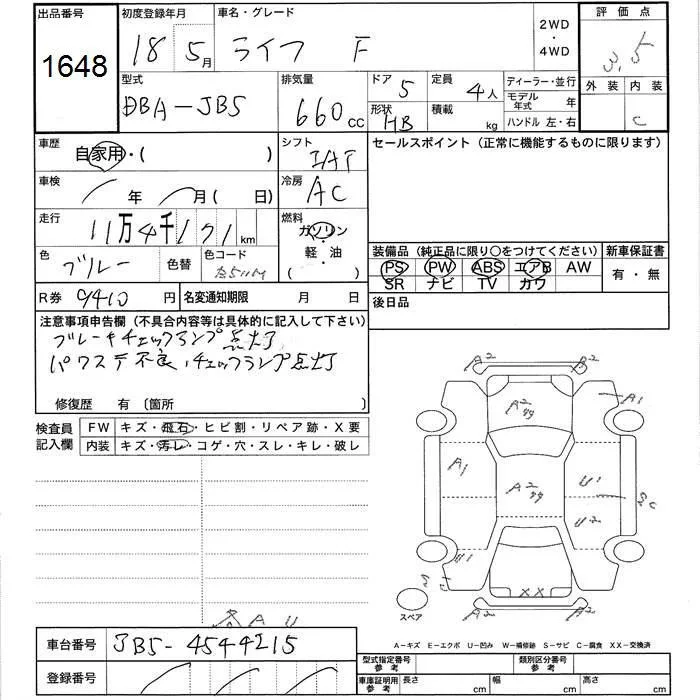 出品番号 初度登録年月 車名・グレード 2WD・4WD 評価点
1648 18 5月 ライフ F 3.5
型式 排気量 ドア 5 定員 4人 ディーラー・並行 外装 内装
DBA-JB5 660cc 形状 HB 積載 kg モデル年式 年 C
ハンドル 左・右
車歴 自家用・( ) シフト IAT セールスポイント (正常に機能するものに限ります)
車検 年 月( 日) 冷房 AC
走行 11万4千171km 燃料 ガソリン・軽・油 ( )
色 ブルー 色替 色コード
装備品 (純正品に限り○をつけてください) 新車保証書
PS PW ABS エアB AW 有・無
SR ナビ TV カワ
R券 9410円 名変通知期限 月 日 後日品
注意事項申告欄 (不具合内容等は具体的に記入して下さい)
ブレーキチェックランプ点灯
パワステ不良、チェックランプ点灯
修復歴 有 〔箇所 〕
検査員記入欄 FW キズ・飛石・ヒビ割・リペア跡・X要
内装 キズ・汚レ・コゲ・穴・スレ・キレ・破レ
A2 A2
A2 A1
A1 A2 U1
U2
XX
スペア
A U
A-キズ E-エクボ U-凹み W-補修跡 S-サビ C-腐食 XX-交換済
車台番号 JB5-4544215
登録番号
型式指定番号 参考 類別区分番号 参考
車庫証明用 参考 長さ cm 幅 cm 高さ cm